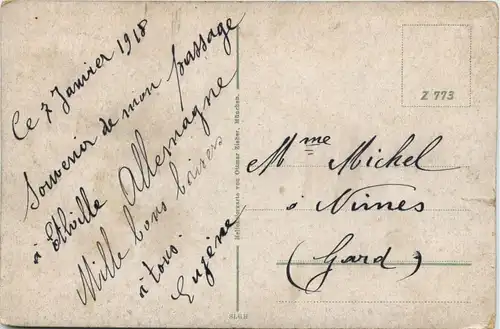 Ce 7 Janvier 1918
Souvenir de mon passage
à Allemagne
Mille bons baisers
à tous.
Eugène
von Ottmar Zieher, München.
Z 773
Mme Michel
à Nimes
(Gard)